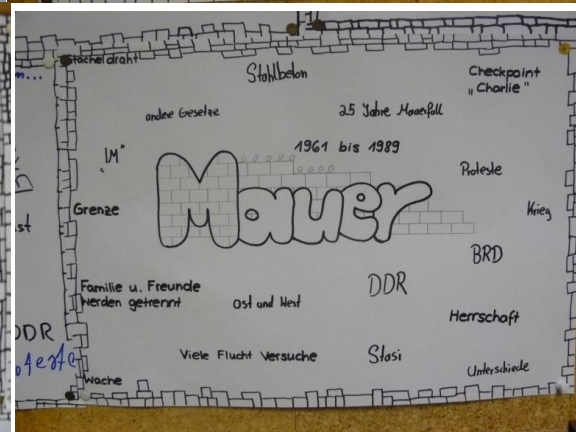 Stacheldraht
Stahlbeton
Checkpoint
„Charlie"
andee Gesetze
25 Jahre Mauerfall
1961 bis 1989
„IM"
Mauer
Proteste
Grenze
Krieg
BRD
DDR
Familie u. Freunde
werden getrennt
Ost und West
Herrschaft
Viele Flucht Versuche
Stasi
Unterschiede
Wache
st
DDR